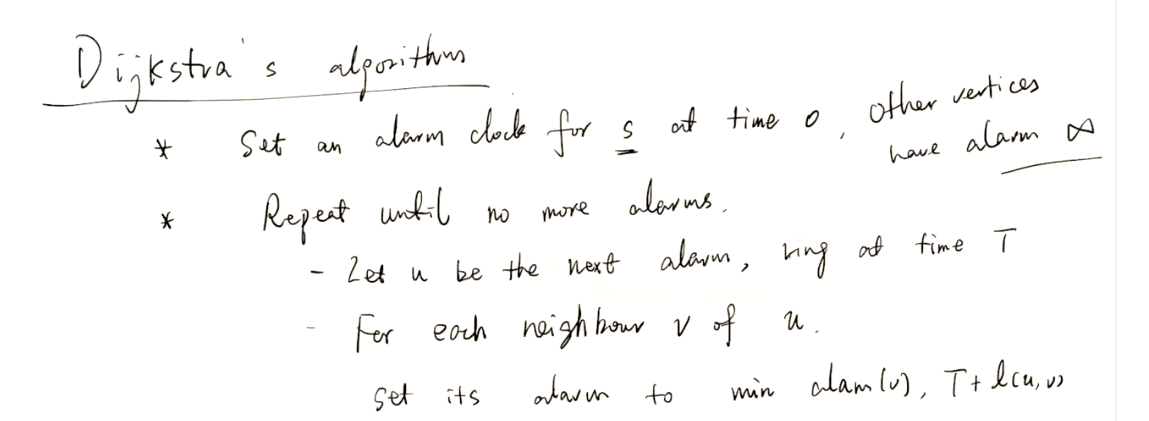 Dijkstra's algorithm
* Set an alarm clock for s at time 0, other vertices
have alarm ∞
* Repeat until no more alarms.
- Let u be the next alarm, ring at time T
- For each neighbour v of u.
set its alarm to min alam(v), T+l(u,v)